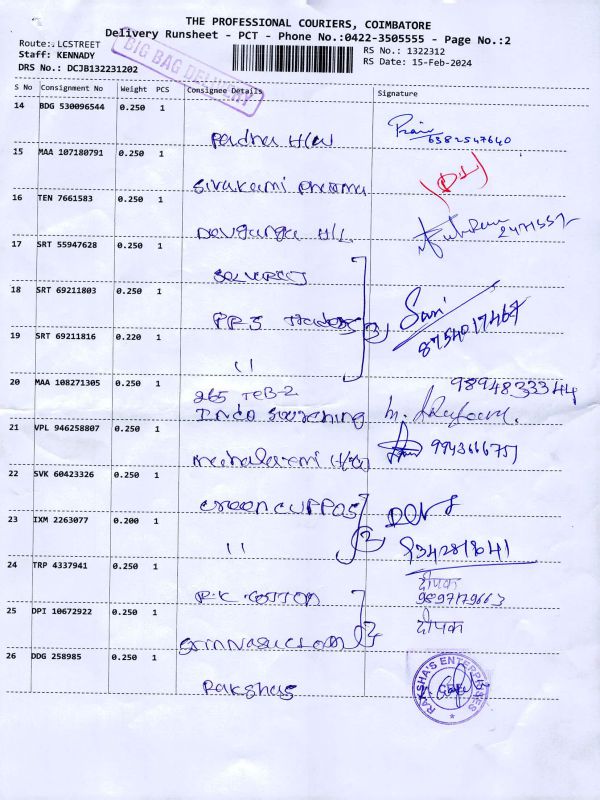 THE PROFESSIONAL COURIERS, COIMBATORE
Delivery Runsheet - PCT - Phone No.:0422-3505555 - Page No.:2
Route:.LCSTREET
Staff: KENNADY
DRS No.: DCJB132231202
BIG BAG DELIVERY
RS No.: 1322312
RS Date: 15-Feb-2024
S No Consignment No Weight PCS Consignee Details Signature
14 BDG 530096544 0.250 1
Padma H/W
6382547640
15 MAA 107180791 0.250 1
Sivakami Pharma
16 TEN 7661583 0.250 1
17 SRT 55947628 0.250 1
18 SRT 69211803 0.250 1
PPS Traders 3 Sasi
8754017467
19 SRT 69211816 0.220 1
"
20 MAA 108271305 0.250 1
265 TEB-2 9894833344
Indo
21 VPL 946258807 0.250 1
Mahalaxmi H/W 9943666751
22 SVK 60423326 0.250 1
23 IXM 2263077 0.200 1
" 2
24 TRP 4337941 0.250 1
दीपक
P.K. COTTON 9897179663
25 DPI 10672922 0.250 1
2 दीपक
26 DDG 258985 0.250 1
Rakshas
RAKSHA'S ENTERPRISES